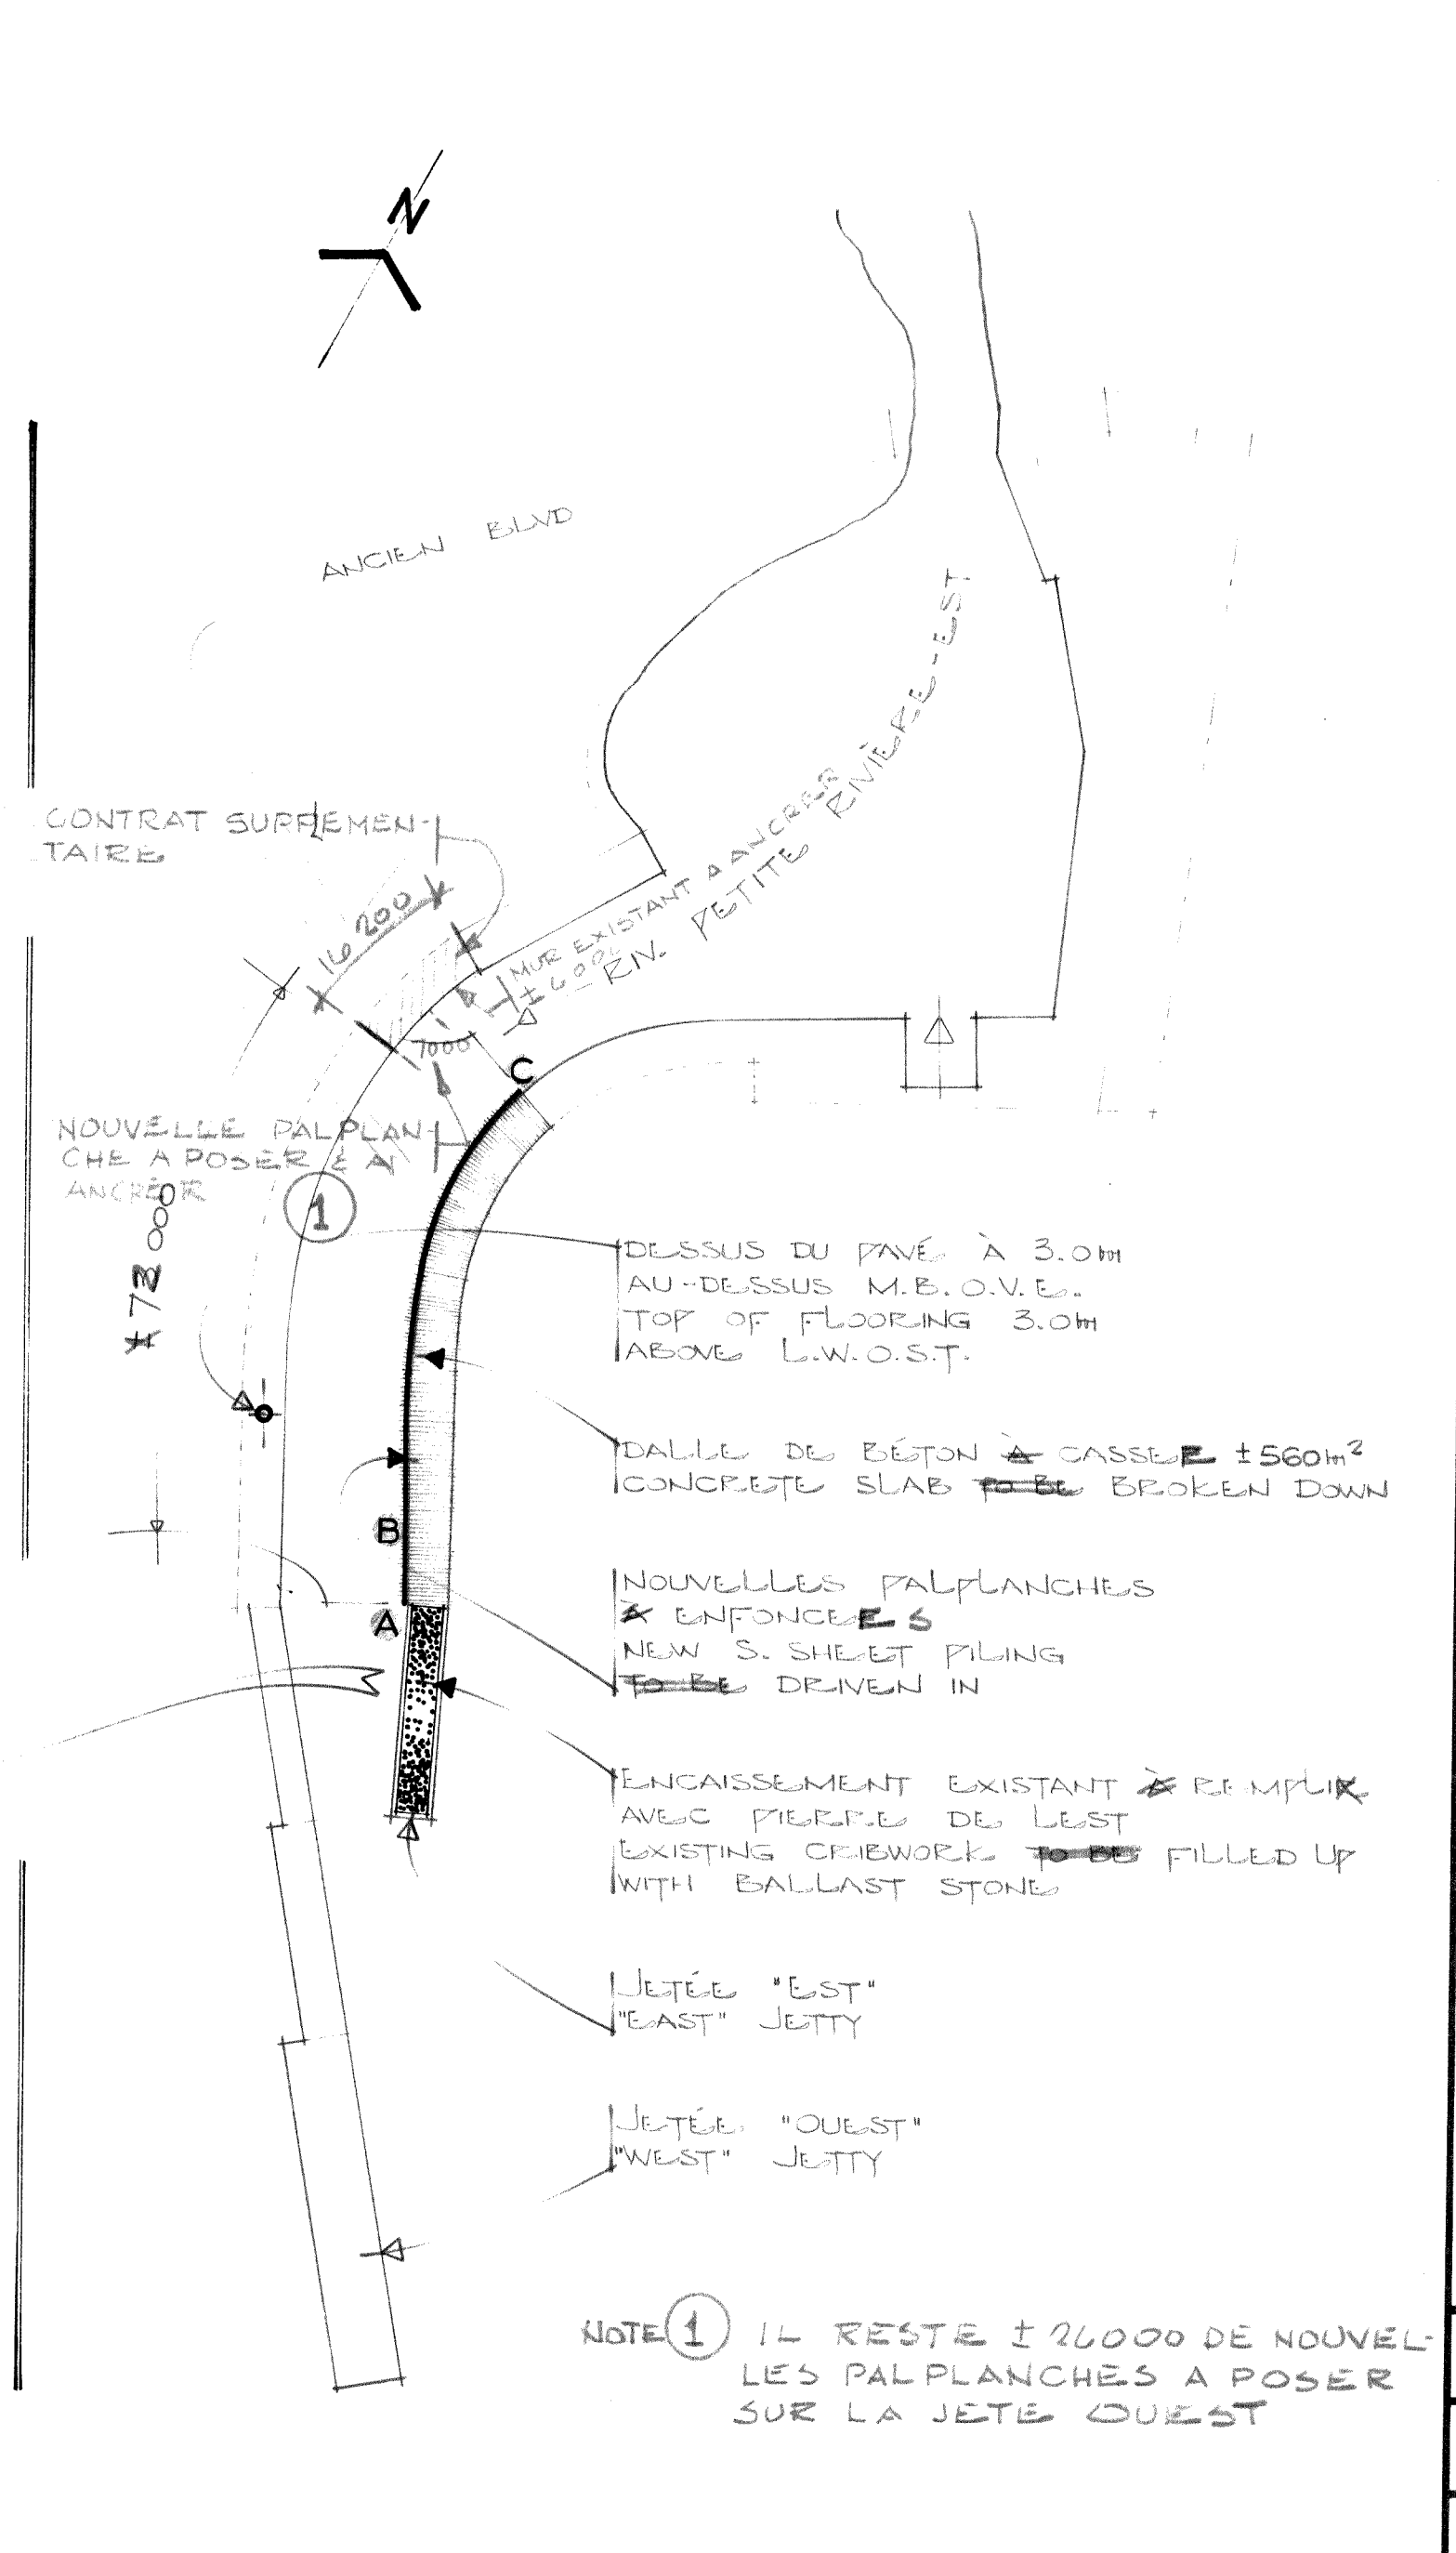 N
ANCIEN BLVD
CONTRAT SUPPLEMEN-
TAIRE
16 200
MUR EXISTANT A ANCRER
RIV. PETITE RIVIÈRE-EST
7000
C
NOUVELLE PALPLAN-
CHE A POSER & A
ANCRER
1
73 000
DESSUS DU PAVÉ À 3.0m
AU-DESSUS M.B.O.V.E.
TOP OF FLOORING 3.0m
ABOVE L.W.O.S.T.
DALLE DE BÉTON À CASSER ±560m²
CONCRETE SLAB TO BE BROKEN DOWN
B
NOUVELLES PALPLANCHES
À ENFONCEES
NEW S. SHEET PILING
TO BE DRIVEN IN
A
ENCAISSEMENT EXISTANT À REMPLIR
AVEC PIERRE DE LEST
EXISTING CRIBWORK TO BE FILLED UP
WITH BALLAST STONE
JETÉE "EST"
"EAST" JETTY
JETÉE "OUEST"
"WEST" JETTY
NOTE 1 IL RESTE ± 26000 DE NOUVEL-
LES PALPLANCHES A POSER
SUR LA JETE OUEST